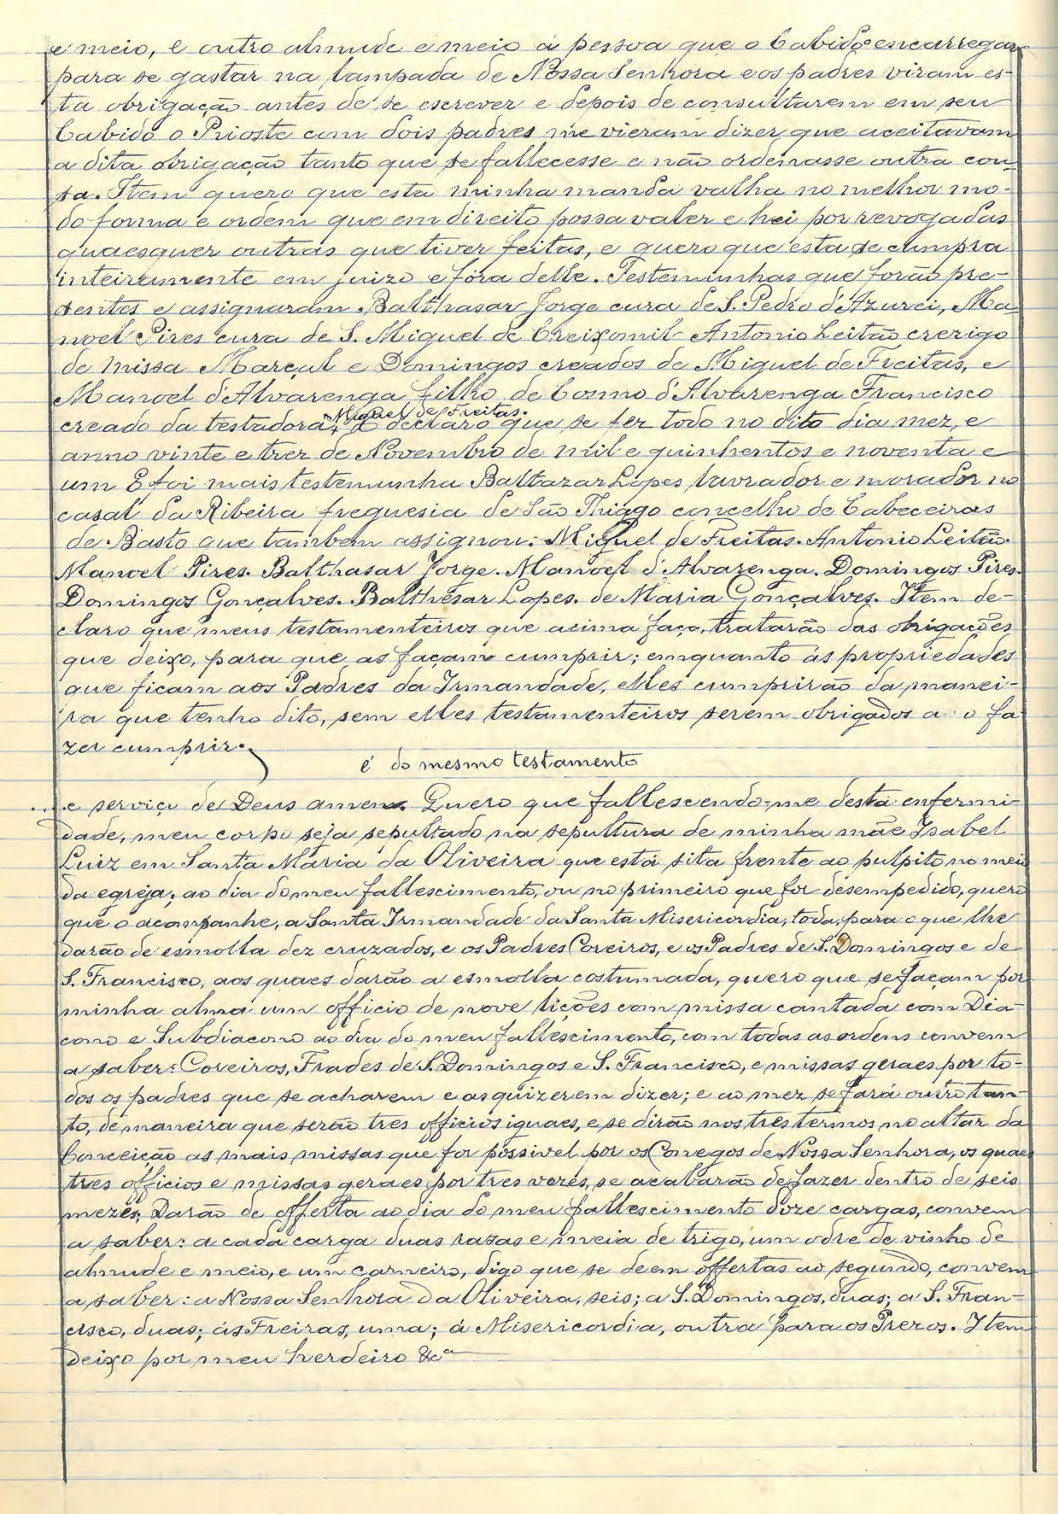 e meio, e outro almude e meio á pessoa que o Cabido encarregar
para se gastar na lampada de Nossa Senhora e os padres viram es-
ta obrigação antes de se escrever e depois de consultarem em seu
Cabido o Prioste com dois padres me vieram dizer que aceitavam
a dita obrigação tanto que se fallecesse e não ordenasse outra cou-
sa. Item quero que esta minha manda valha no melhor mo-
do forma e ordem que em direito possa valer e hei por revogadas
quaesquer outras que tiver feitas, e quero que esta se cumpra
inteiramente em juizo e fóra delle. Testemunhas que forão pre-
sentes e assignaram Balthasar Jorge cura de S. Pedro d'Azurei, Ma-
noel Pires cura de S. Miguel de Creixomil Antonio Leitão crerigo
de missa Marçal e Domingos creados de Miguel de Freitas, e
Manoel d'Alvarenga filho de Cosmo d'Alvarenga Francisco
Miguel de Freitas.
creado da testadora, E declaro que se fez todo no dito dia mez, e
anno vinte e trez de Novembro de mil e quinhentos e noventa e
um E foi mais testemunha Baltazar Lopes lavrador e morador no
casal da Ribeira freguesia de São Thiago concelho de Cabeceiras
de Basto que tambem assignou. Miguel de Freitas. Antonio Leitão.
Manoel Pires. Balthasar Jorge. Manoel d'Alvarenga. Domingos Pires.
Domingos Gonçalves. Balthesar Lopes. de Maria Gonçalves. Item de-
claro que meus testamenteiros que acima faço, tratarão das obrigações
que deixo, para que as façam cumprir; emquanto ás propriedades
que ficam aos Padres da Irmandade, elles cumprirão da manei-
ra que tenho dito, sem elles testamenteiros serem obrigados a o fa
zer cumprir.
é do mesmo testamento
... e serviço de Deus amen. Quero que fallescendo-me desta enfermi-
dade, meu corpo seja sepultado na sepultura de minha mãe Isabel
Luiz em Santa Maria da Oliveira que está sita frente ao pulpito no meio
da egreja; ao dia do meu fallescimento, ou no primeiro que for desempedido, quero
que o acompanhe, a Santa Irmandade da Santa Misericordia, toda, para o que lhe
darão de esmolla dez cruzados, e os Padres Coreiros, e os Padres de S. Domingos e de
S. Francisco, aos quaes darão a esmolla costumada, quero que se façam por
minha alma um officio de nove lições com missa cantada com Dia-
cono e Subdiacono ao dia do meu fallescimento, com todas as ordens convem
a saber: Coreiros, Frades de S. Domingos e S. Francisco, e missas geraes por to-
dos os padres que se acharem e as quizerem dizer; e ao mez se fará outro tan-
to, de maneira que serão tres officios iguaes, e se dirão nos tres termos no altar da
Conceição as mais missas que for possivel por os Conegos de Nossa Senhora, os quaes
tres officios e missas geraes por tres vezes, se acabarão de fazer dentro de seis
mezes, Darão de offerta ao dia do meu fallescimento doze cargas, convem
a saber: a cada carga duas razas e meia de trigo, um odre de vinho de
almude e meio, e um carneiro, digo que se deem offertas ao segundo, convem
a saber: a Nossa Senhora da Oliveira, seis; a S. Domingos, duas; a S. Fran-
cisco, duas; ás Freiras, uma; á Misericordia, outra para os Prezos. Item
deixo por meu herdeiro &cª